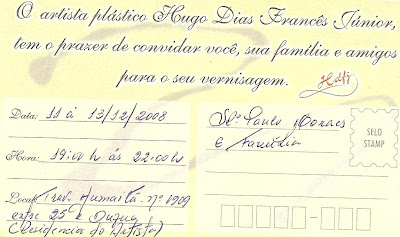 O artista plástico Hugo Dias Francês Júnior,
tem o prazer de convidar você, sua família e amigos
para o seu vernisagem.
Data: 11 á 13/12/2008
Hora: 19:00 h ás 22:00hs
Local: Trav. Humaitá nº 1909
entre 25 e Duque
(Residencia do Artista)
Paulo Moraes
e Família
SELO
STAMP